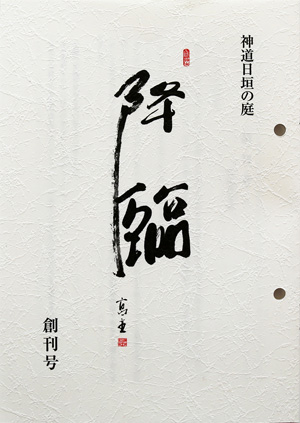 神道日垣の庭
降臨
創刊号